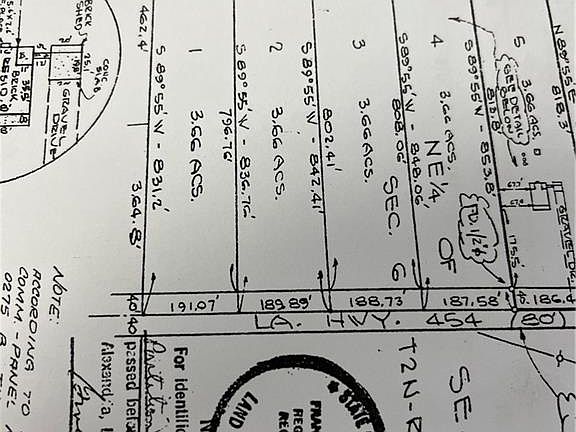 462.4'
S 89°55' W - 831.2'
364.8'
1
3.66 ACS.
796.76'
S 89°55' W - 836.76'
2
3.66 ACS.
802.41'
S 89°55' W - 842.41'
3
3.66 ACS.
808.06'
S 89°55' W - 848.06'
4
3.66 ACS.
813.8'
S 89°55' W - 853.8'
5
3.66 ACS.
SEE DETAIL
BELOW
N 89°55'
818.3'
NE/4 OF
SEC. 6
FD. 1/2"φ
175.5'
GRAVEL DR.
191.07'
189.89'
188.73'
187.58'
186.4
40' 40'
LA. HWY. 454 (80')
BRICK
SHED
CONC.
SLAB
25.1'
GRAVEL
DRIVE
BRICK
NOTE:
ACCORDING TO
COMM.-PANEL
0275 B
For identifi
passed befo
Alexandria,
STATE
LAND
T2N-R
SE